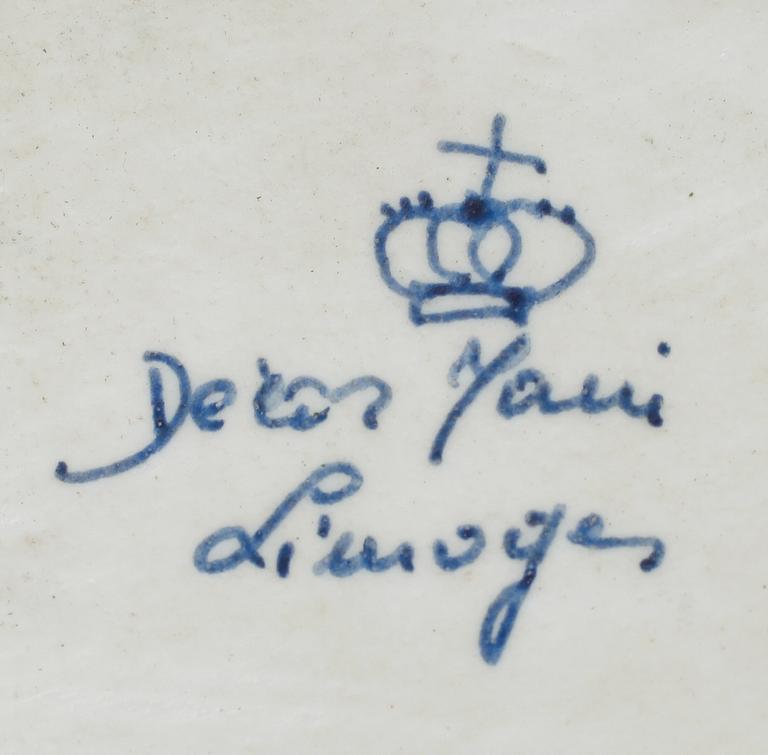 Decor Main
Limoges